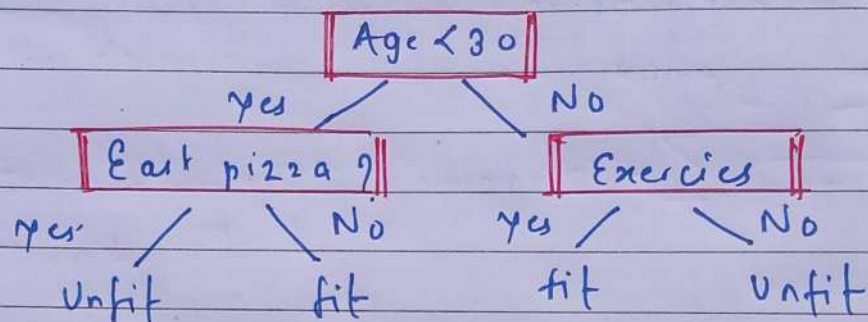 Age < 30
Yes No
East pizza ? Exercies
Yes No Yes No
Unfit fit fit Unfit